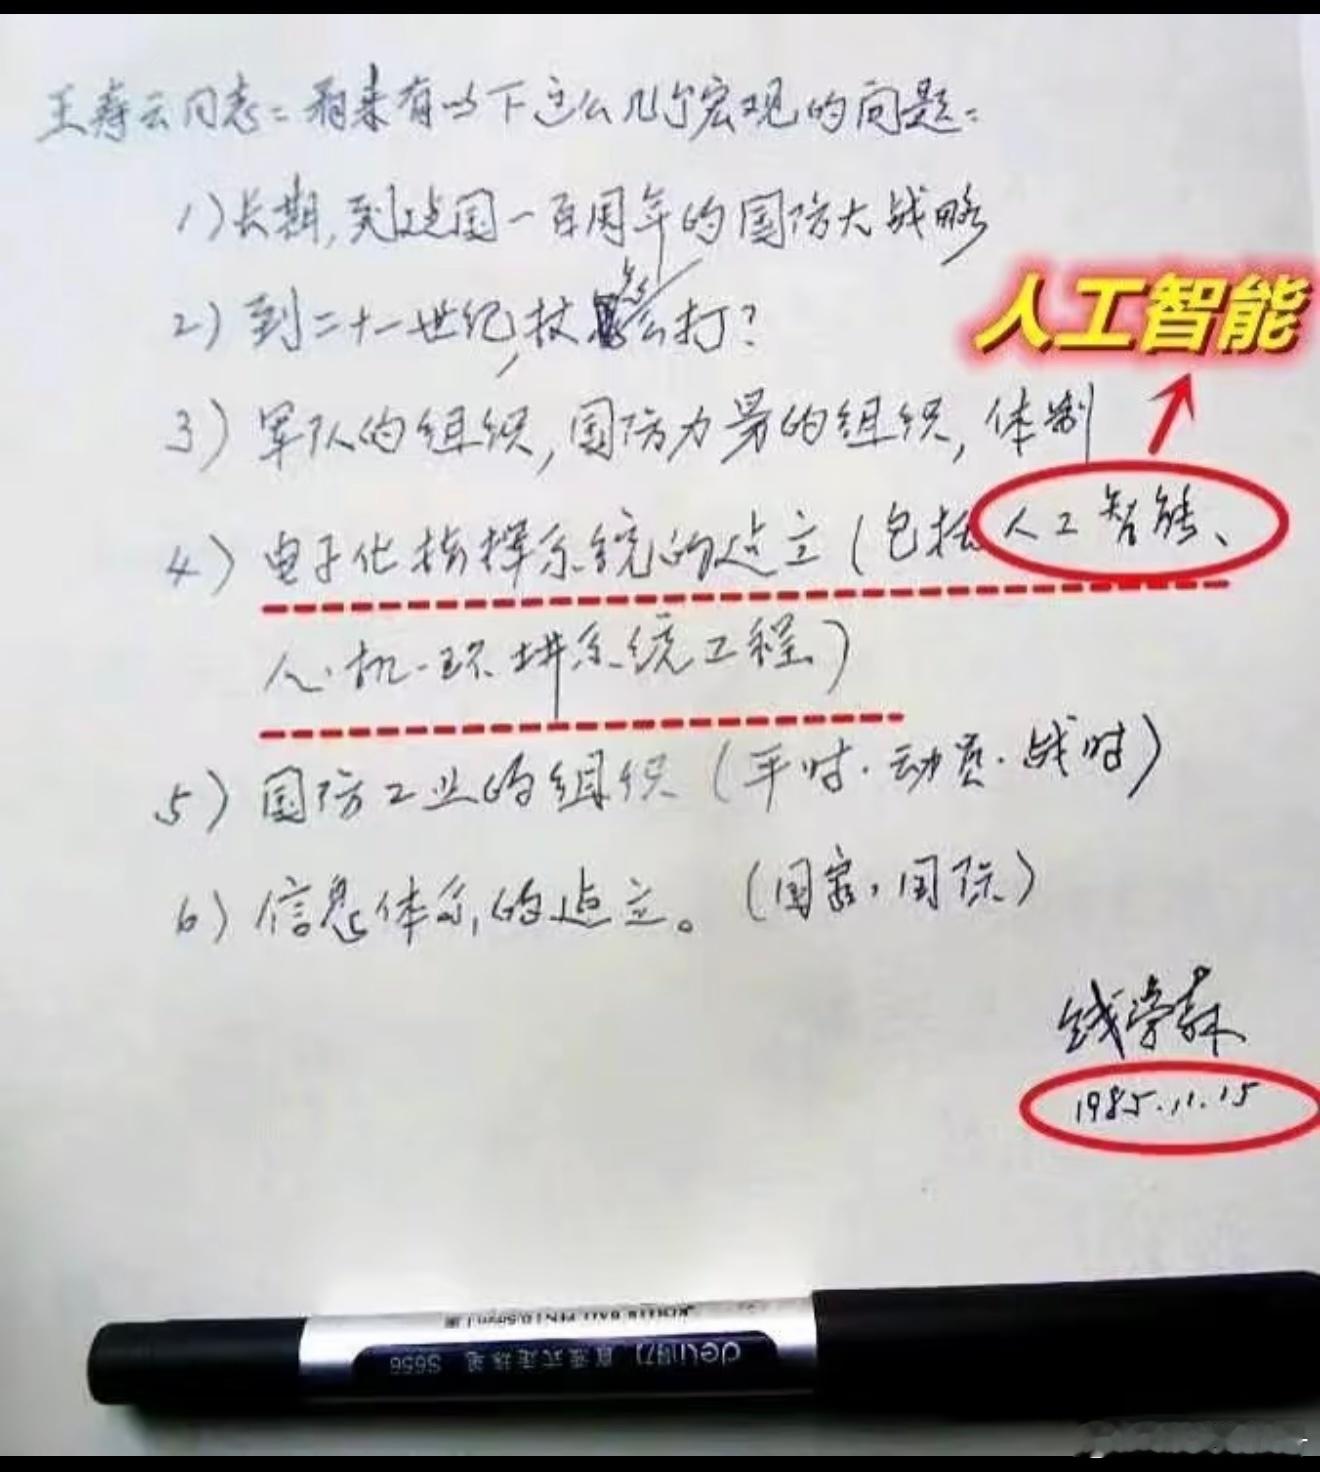 王寿云同志：看来有以下这么几个宏观的问题：
1）长期，到建国一百周年的国防大战略
2）到二十一世纪，仗怎么打？
人工智能
3）军队的组织，国防力量的组织，体制
4）电子化指挥系统的建立（包括人工智能、
人-机-环境系统工程）
5）国防工业的组织（平时·动员·战时）
6）信息体系的建立。（国家，国际）
钱学森
1985.11.15
deli得力 直液式走珠笔 S656
ROLLER BALL PEN 0.5mm